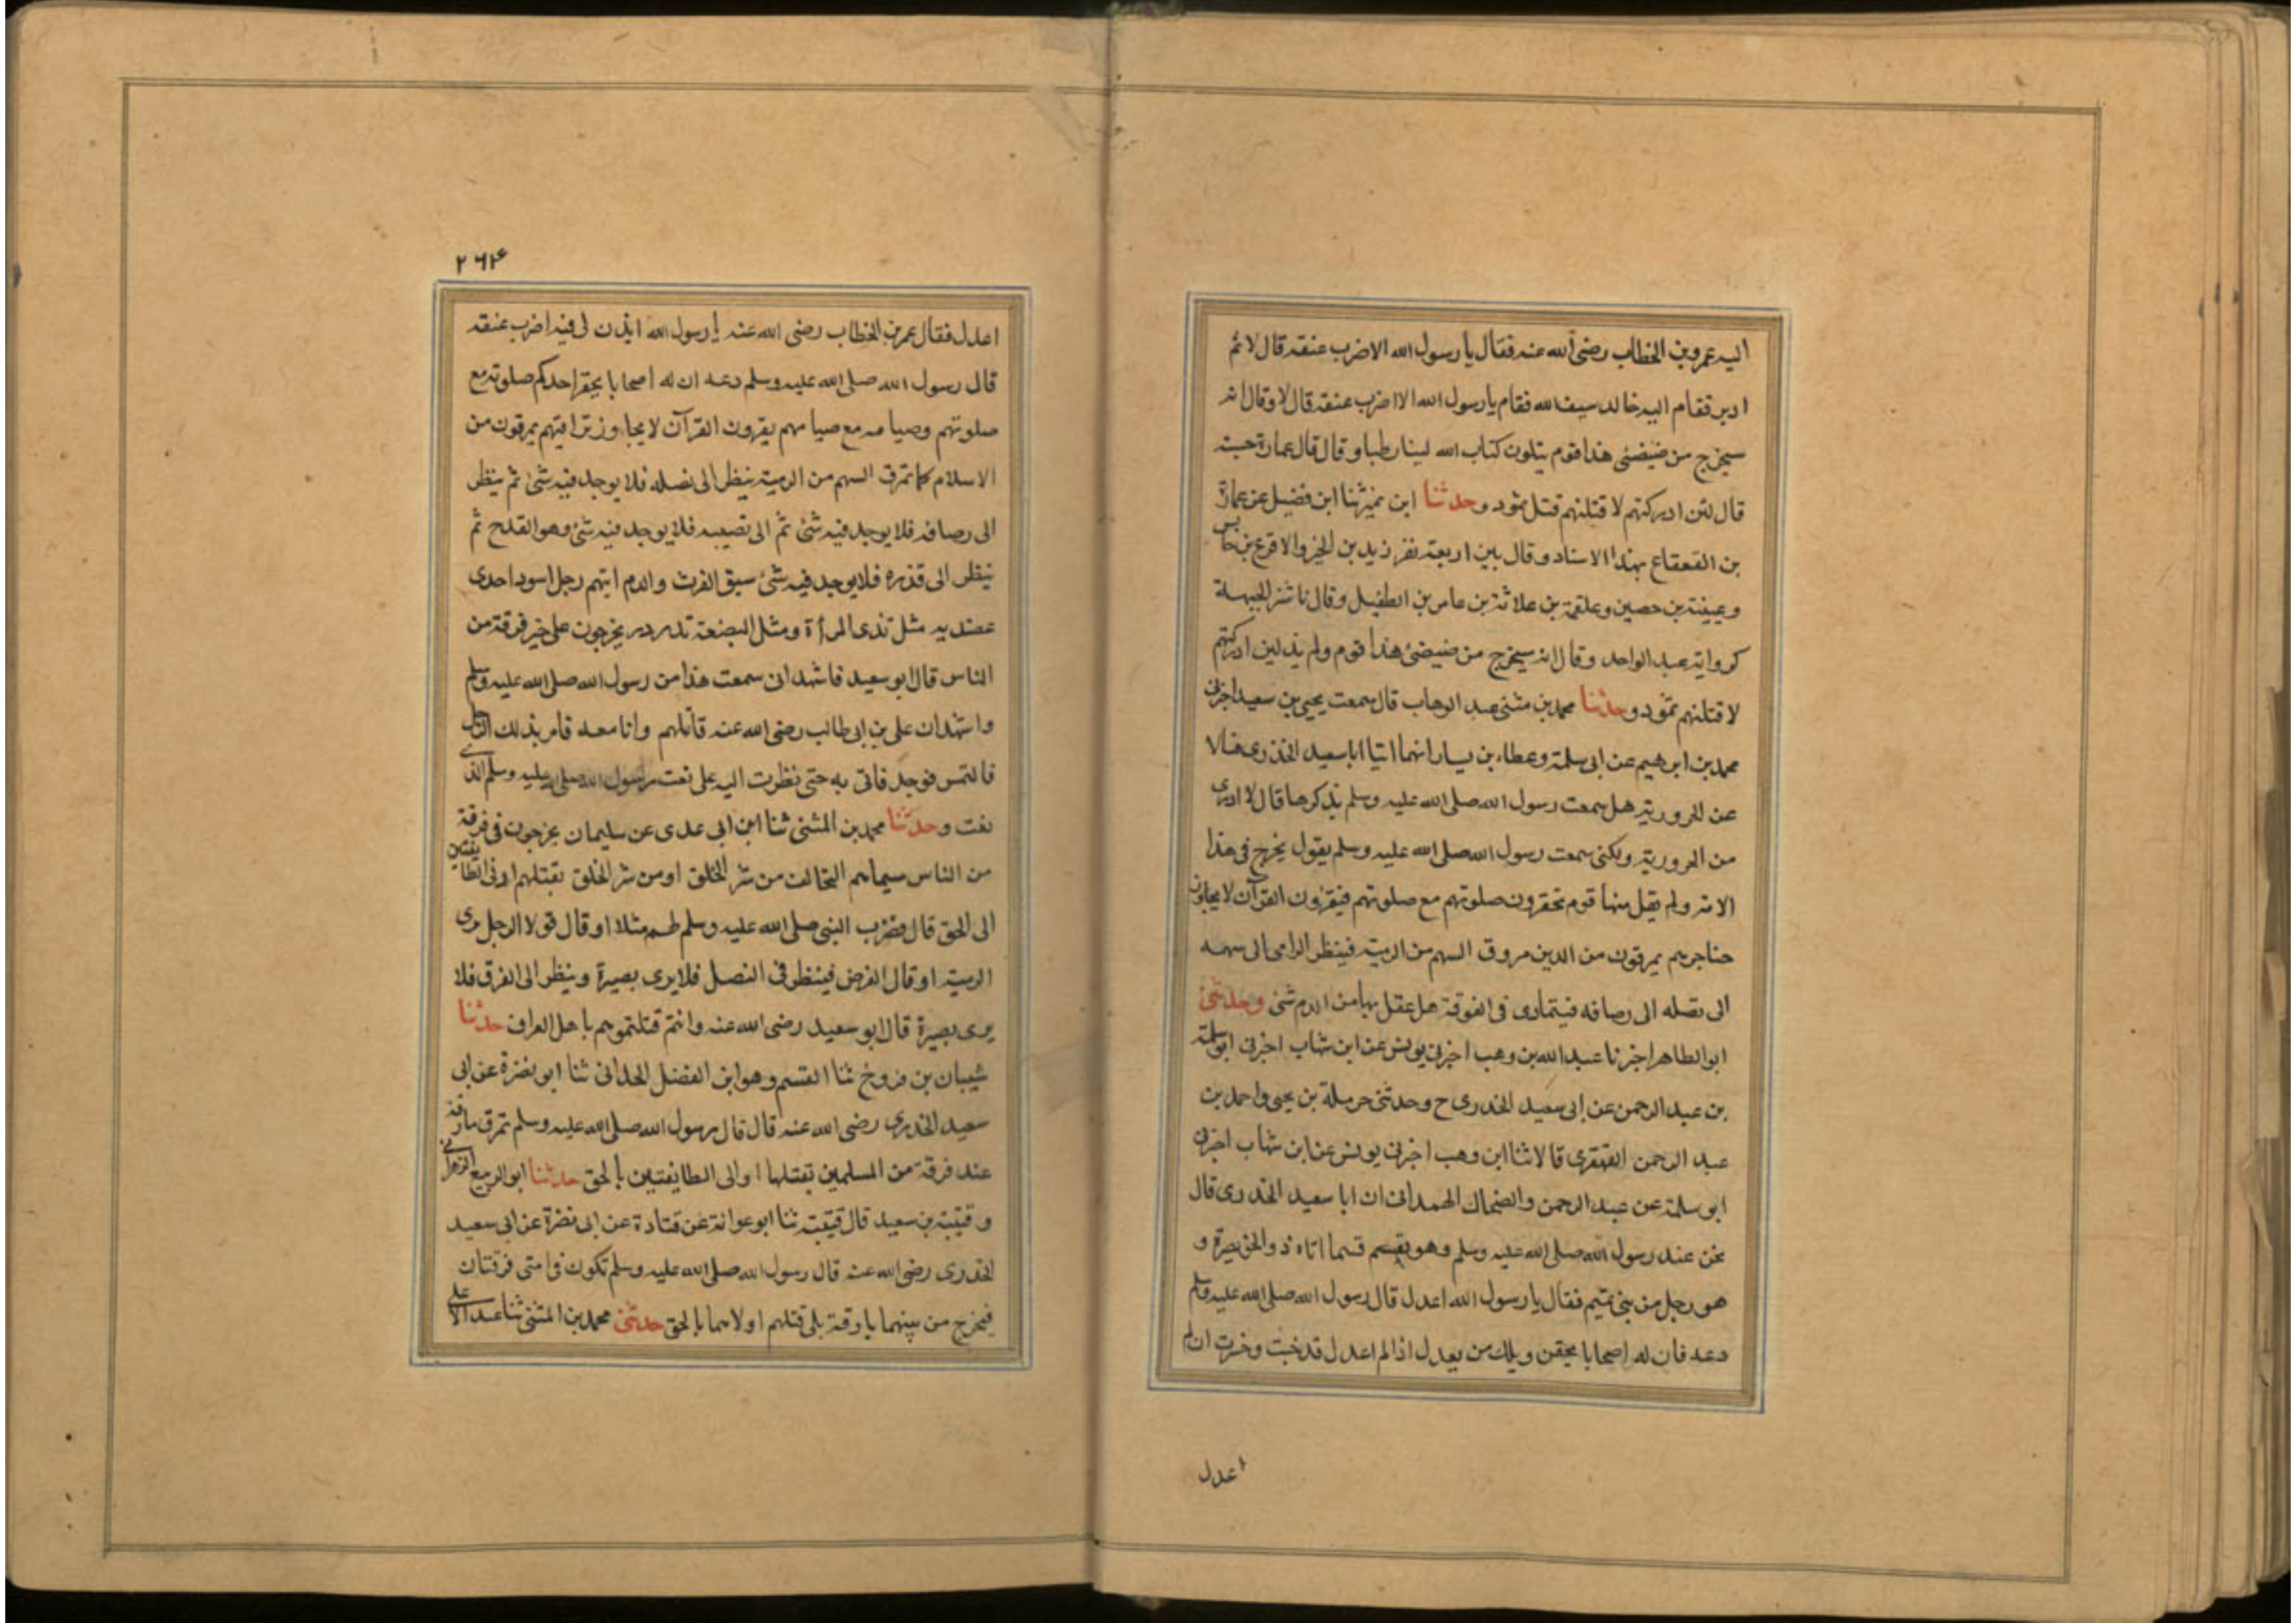 اليه عمر وبن الخطاب رضى الله عنه فقال يا رسول الله الا ضرب عنقه قال لا ثم
ادبر فقام اليه خالد سيف الله فقام يا رسول الله الا اضرب عنقه قال لا وقال انه
سيخرج من ضيضئى هذا قوم يتلون كتاب الله لينا رطبا وقال قال عمارة حسبته
قال لئن ادركتهم لا قتلنهم قتل ثمود وحدثنا ابن نمير ثنا ابن فضيل عن عمارة
بن القعقاع بهذا الاسناد وقال بين اربعة نفر زيد بن الخير والاقرع بن حابس
وعيينة بن حصين وعلقمة بن علاثة بن عامر بن الطفيل وقال ناشز الجبهة
كرواية عبد الواحد وقال انه سيخرج من ضيضئ هذا قوم ولم يذ لين ادركتهم
لا قتلنهم ثمود وحدثنا محمد بن مثنى عبد الوهاب قال سمعت يحيى بن سعيد اخبرنى
محمد بن ابرهيم عن ابى سلمة وعطاء بن يسار انهما اتيا ابا سعيد الخدرى فسالا
عن الحرورية هل سمعت رسول الله صلى الله عليه وسلم يذكرها قال لا ادرى
من الحرورية ولكنى سمعت رسول الله صلى الله عليه وسلم يقول يخرج فى هذا
الامة ولم يقل منها قوم تحقرون صلوتهم مع صلوتهم فيقرون القرآن لا يجاوز
حناجرهم يمرقون من الدين مروق السهم من الرمية فينظر الرامى الى سهمه
الى نصله الى رصافه فيتمارى فى الفوقة هل عقل بها من الدم شئ وحدثنى
ابو الطاهر اخبرنا عبد الله بن وهب اخبرنى يونس عن ابن شهاب اخبرنى ابو سلمة
بن عبد الرحمن عن ابى سعيد الخدرى ح وحدثنى حرملة بن يحيى واحمد بن
عبد الرحمن الفهرى قا لا ثنا ابن وهب اخبرنى يونس عن ابن شهاب اخبرنى
ابو سلمة عن عبد الرحمن والضحاك الهمدانى ان ابا سعيد الخدرى قال
نحن عند رسول الله صلى الله عليه وسلم وهو يقسم قسما اتاه ذو الخويصرة و
هو رجل من بنى تميم فقال يا رسول الله اعدل قال رسول الله صلى الله عليه وسلم
دعه فان له اصحابا يحقر ويلك من يعدل اذا لم اعدل قد خبت وخسرت ان لم
اعدل
٢٦٤
اعدل فقال عمر بن الخطاب رضى الله عنه يا رسول الله ايذن لى فيه اضرب عنقه
قال رسول الله صلى الله عليه وسلم دعه ان له اصحابا يحقر احدكم صلوته مع
صلوتهم وصيامه مع صيامهم يقرون القرآن لا يجاوز تراقيهم يمرقون من
الاسلام كما تمرق السهم من الرمية ينظر الى نصله فلا يوجد فيه شئ ثم ينظر
الى رصافه فلا يوجد فيه شئ ثم الى نصيبه فلا يوجد فيه شئ وهو القدح ثم
ينظر الى قذره فلا يوجد فيه شئ سبق الفرث والدم ايتهم رجل اسود احدى
عضديه مثل ثدى المرأة ومثل البضعة تدردر يخرجون على خير فرقة من
الناس قال ابو سعيد فاشهد انى سمعت هذا من رسول الله صلى الله عليه وسلم
واشهد ان على بن ابى طالب رضى الله عنه قاتلهم وانا معه فامر بذلك الرجل
فالتمس فوجد فاتى به حتى نظرت اليه على نعت رسول الله صلى عليه وسلم الذى
نعت وحدثنا محمد بن المثنى ثنا ابن ابى عدى عن سليمان يخرجون فى فرقة
من الناس سيماهم التحالف من شر الخلق او من شر الخلق يقتلهم ادنى الطايفتين
الى الحق قال فضرب النبى صلى الله عليه وسلم لهم مثلا او قال قولا الرجل يرى
الرمية او قال الغرض فينظر فى النصل فلا يرى بصيرة وينظر الى الفرق فلا
يرى بصيرة قال ابو سعيد رضى الله عنه وانتم قتلتموهم يا هل العراق حدثنا
شيبان بن فروخ ثنا القسم وهو ابن الفضل الحدانى ثنا ابو نضرة عن ابى
سعيد الخدرى رضى الله عنه قال قال رسول الله صلى الله عليه وسلم تمرق مارقة
عند فرقة من المسلمين تقتلها اوالى الطايفتين بالحق حدثنا ابو الربيع الزهرانى
وقتيبة بن سعيد قال قتيبة ثنا ابو عوانة عن قتادة عن ابى نضرة عن ابى سعيد
الخدرى رضى الله عنه قال رسول الله صلى الله عليه وسلم تكون فى امتى فرقتان
فيخرج من بينهما بارقة يلى قتلهم اولاهما بالحق حدثنى محمد بن المثنى ثنا عبد الاعلى